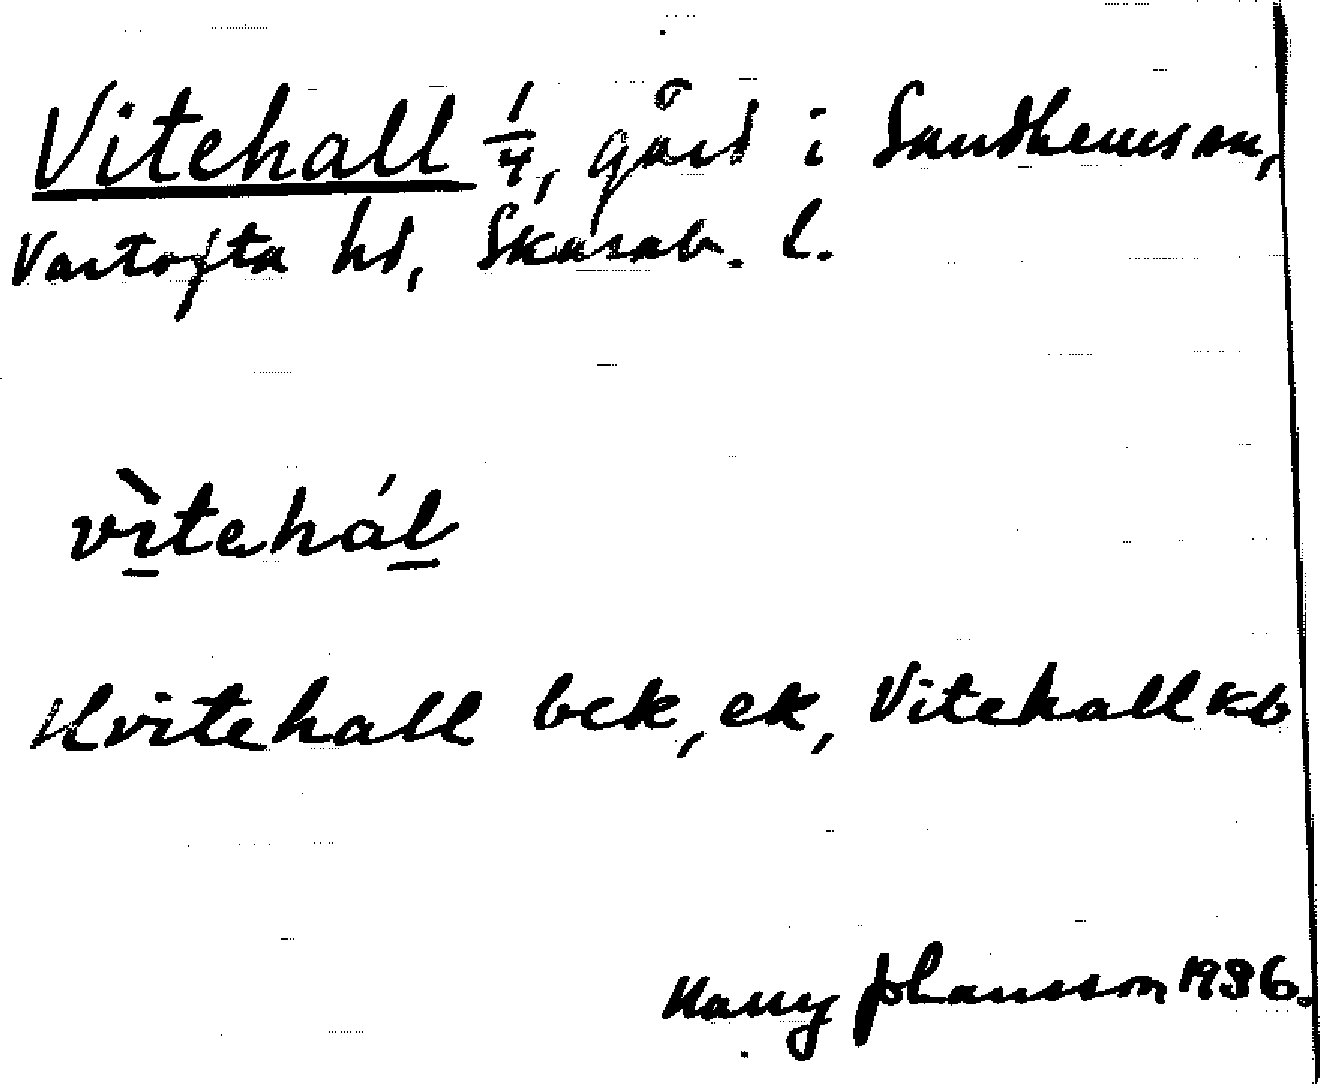 Vitehall 1/4, gård i Sandhems sn,
Vartofta hd, Skarab. l.
vìtehál
Hvitehall bck, ek, Vitehall kb
Harry Johansson 1936.